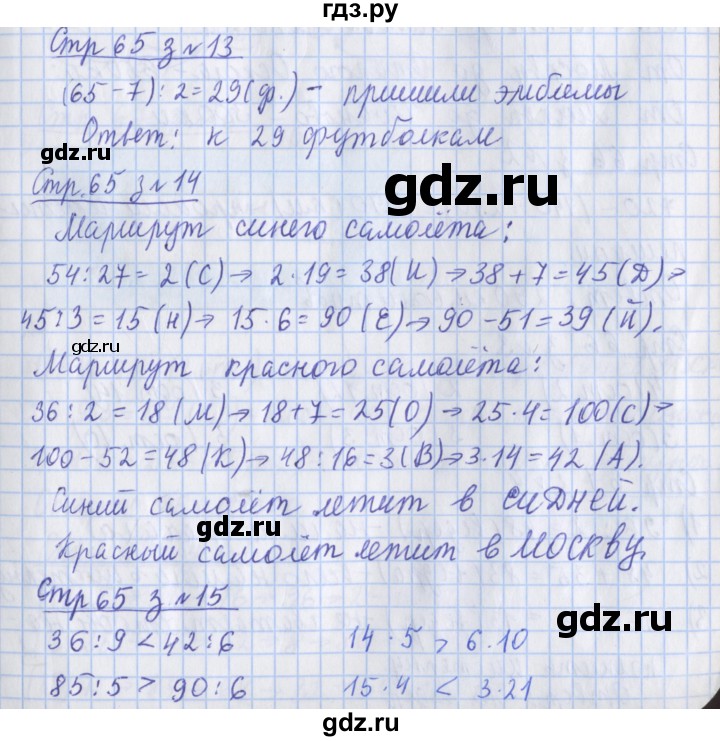 гдз.ру
Стр 65 з №13
(65-7):2=29(ф.) - пришили эмблемы
Ответ: к 29 футболкам
gdz.ru
gdz.ru
Стр.65 з №14
Маршрут синего самолёта:
54:27=2(С)→ 2·19=38(И)→38+7=45(Д)→
45:3=15(Н)→ 15·6=90(Е)→90-51=39(Й).
gdz.ru
Маршрут красного самолёта:
36:2=18(М)→18+7=25(О)→25·4=100(С)→
100-52=48(К)→48:16=3(В)→3·14=42(А).
Синий самолёт летит в СИДНЕЙ.
gdz.ru
Красный самолёт летит в МОСКВУ.
Стр 65 з №15
gdz.ru
36:9<42:6 14·5 > 6·10
85:5> 90:6 15·4 < 3·21
gdz.ru